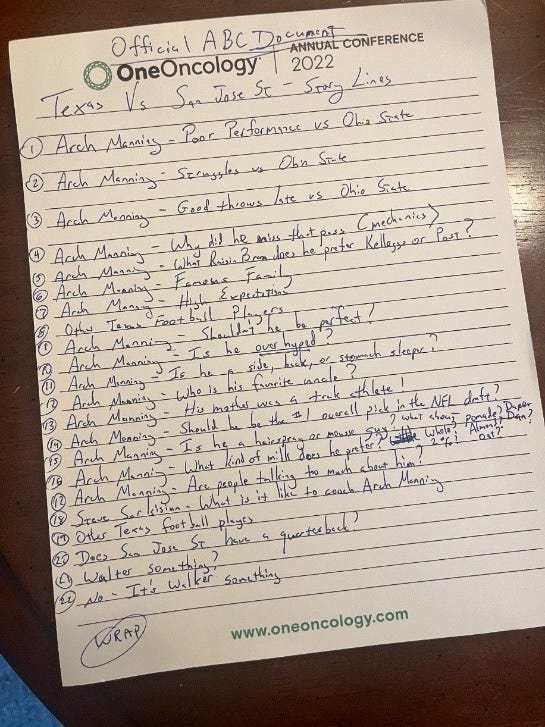 Official ABC Document
OneOncology | ANNUAL CONFERENCE
2022
Texas Vs San Jose St - Story Lines
① Arch Manning - Poor Performance vs Ohio State
② Arch Manning - Struggles vs Ohio State
③ Arch Manning - Good throws late vs Ohio State
④ Arch Manning - Why did he miss that pass (mechanics)
⑤ Arch Manning - What Raisin Bran does he prefer Kelloggs or Post?
⑥ Arch Manning - Famous Famil
⑦ Arch Manning - High Expectations
⑧ Other Texas Football Players
⑨ Arch Manning - Shouldn't he be perfect?
⑩ Arch Manning - Is he overhyped?
⑪ Arch Manning - Is he a side, back, or stomach sleeper?
⑫ Arch Manning - Who is his favorite uncle?
⑬ Arch Manning - His mother was a trak athlete!
⑭ Arch Manning - Should he be the #1 overall pick in the NFL draft?
⑮ Arch Manning - Is he a hairspray or mouse guy? What about pomade? Dapper Dan?
⑯ Arch Manning - What kind of milk does he prefer? Whole? 2%? Almond? Oat?
⑰ Arch Manning - Are people talking to much about him?
⑱ Steve Sarkisian - What is it like to coach Arch Manning
⑲ Other Texas football players
⑳ Does San Jose St have a quarterback?
㉑ Walter something?
㉒ No - It's Walker something
WRAP
www.oneoncology.com